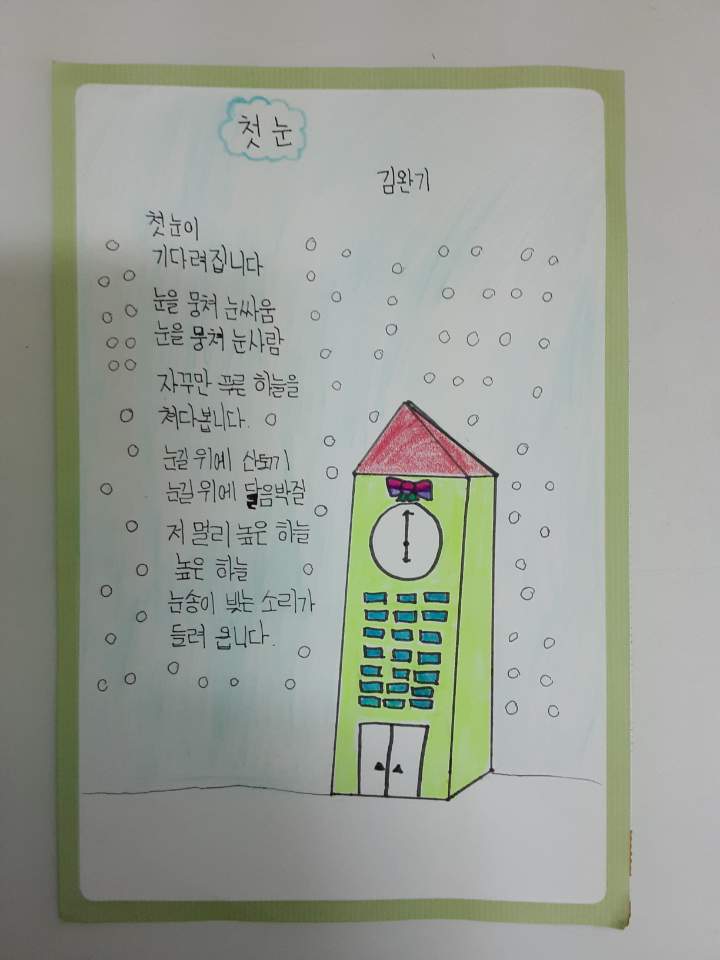 첫 눈
김완기
첫눈이
기다려집니다
눈을 뭉쳐 눈싸움
눈을 뭉쳐 눈사람
자꾸만 푸른 하늘을
쳐다봅니다.
눈길 위에 산토끼
눈길 위에 달음박질
저 멀리 높은 하늘
높은 하늘
눈송이 빚는 소리가
들려 옵니다.